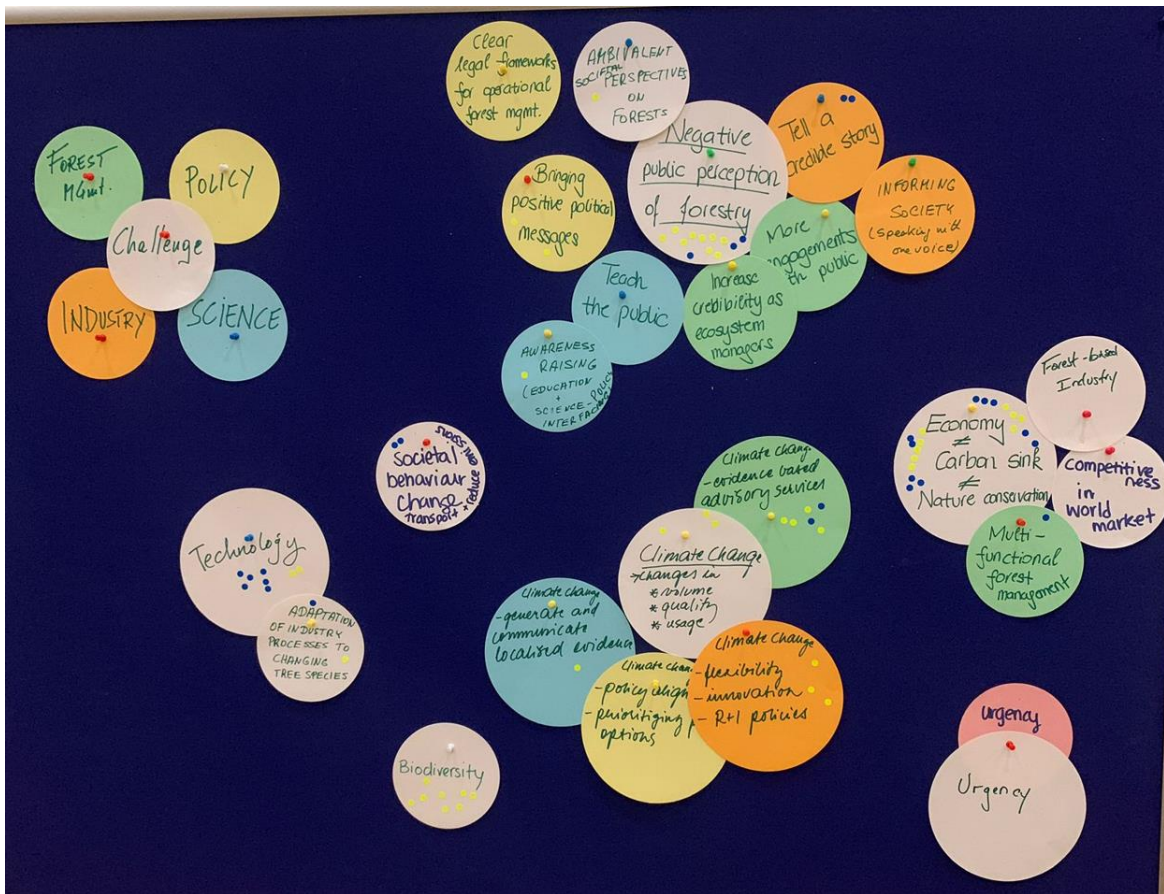 FOREST
MGmt.
POLICY
Challenge
INDUSTRY
SCIENCE
Clear
legal frameworks
for operational
forest mgmt.
AMBIVALENT
SOCIETAL PERSPECTIVES
ON
FORESTS
Negative
public perception
of forestry
Tell a
credible story
INFORMING
SOCIETY
(Speaking with
one voice)
Bringing
positive political
messages
More
engagements
the public
Increase
credibility as
ecosystem
managers
Teach
the public
AWARENESS
RAISING
(EDUCATION
+
SCIENCE-POLICY
INTERFACE
Societal
behaviour
change
transport + reduce emissions
Technology
ADAPTATION
OF INDUSTRY
PROCESSES TO
CHANGING
TREE SPECIES
Climate Change
- evidence based
advisory services
Climate Change
→ changes in
* volume
* quality
* usage
Climate Change
- generate and
communicate
localised evidence
Climate Chan
- policy align
- prioritizing
options
Climate Change
- flexibility
- innovation
- R+I policies
Biodiversity
Forest-based
Industry
Economy
≠
Carbon sink
≠
Nature conservation
Competitive
ness
in
world
market
Multi-
functional
forest
management
urgency
Urgency